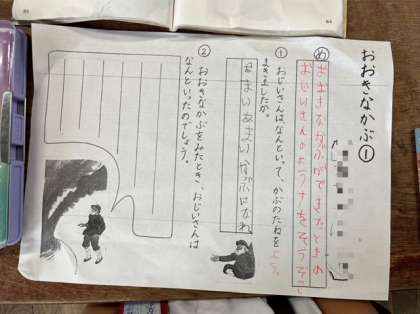 おおきなかぶ①
め
おおきなかぶができたときの
おじいさんのようすをそうぞう
① おじいさんはなんといって、かぶのたねを
まきましたか。
あまいあまいかぶになれ
② おおきなかぶをみたとき、おじいさんは
なんといったのでしょう。